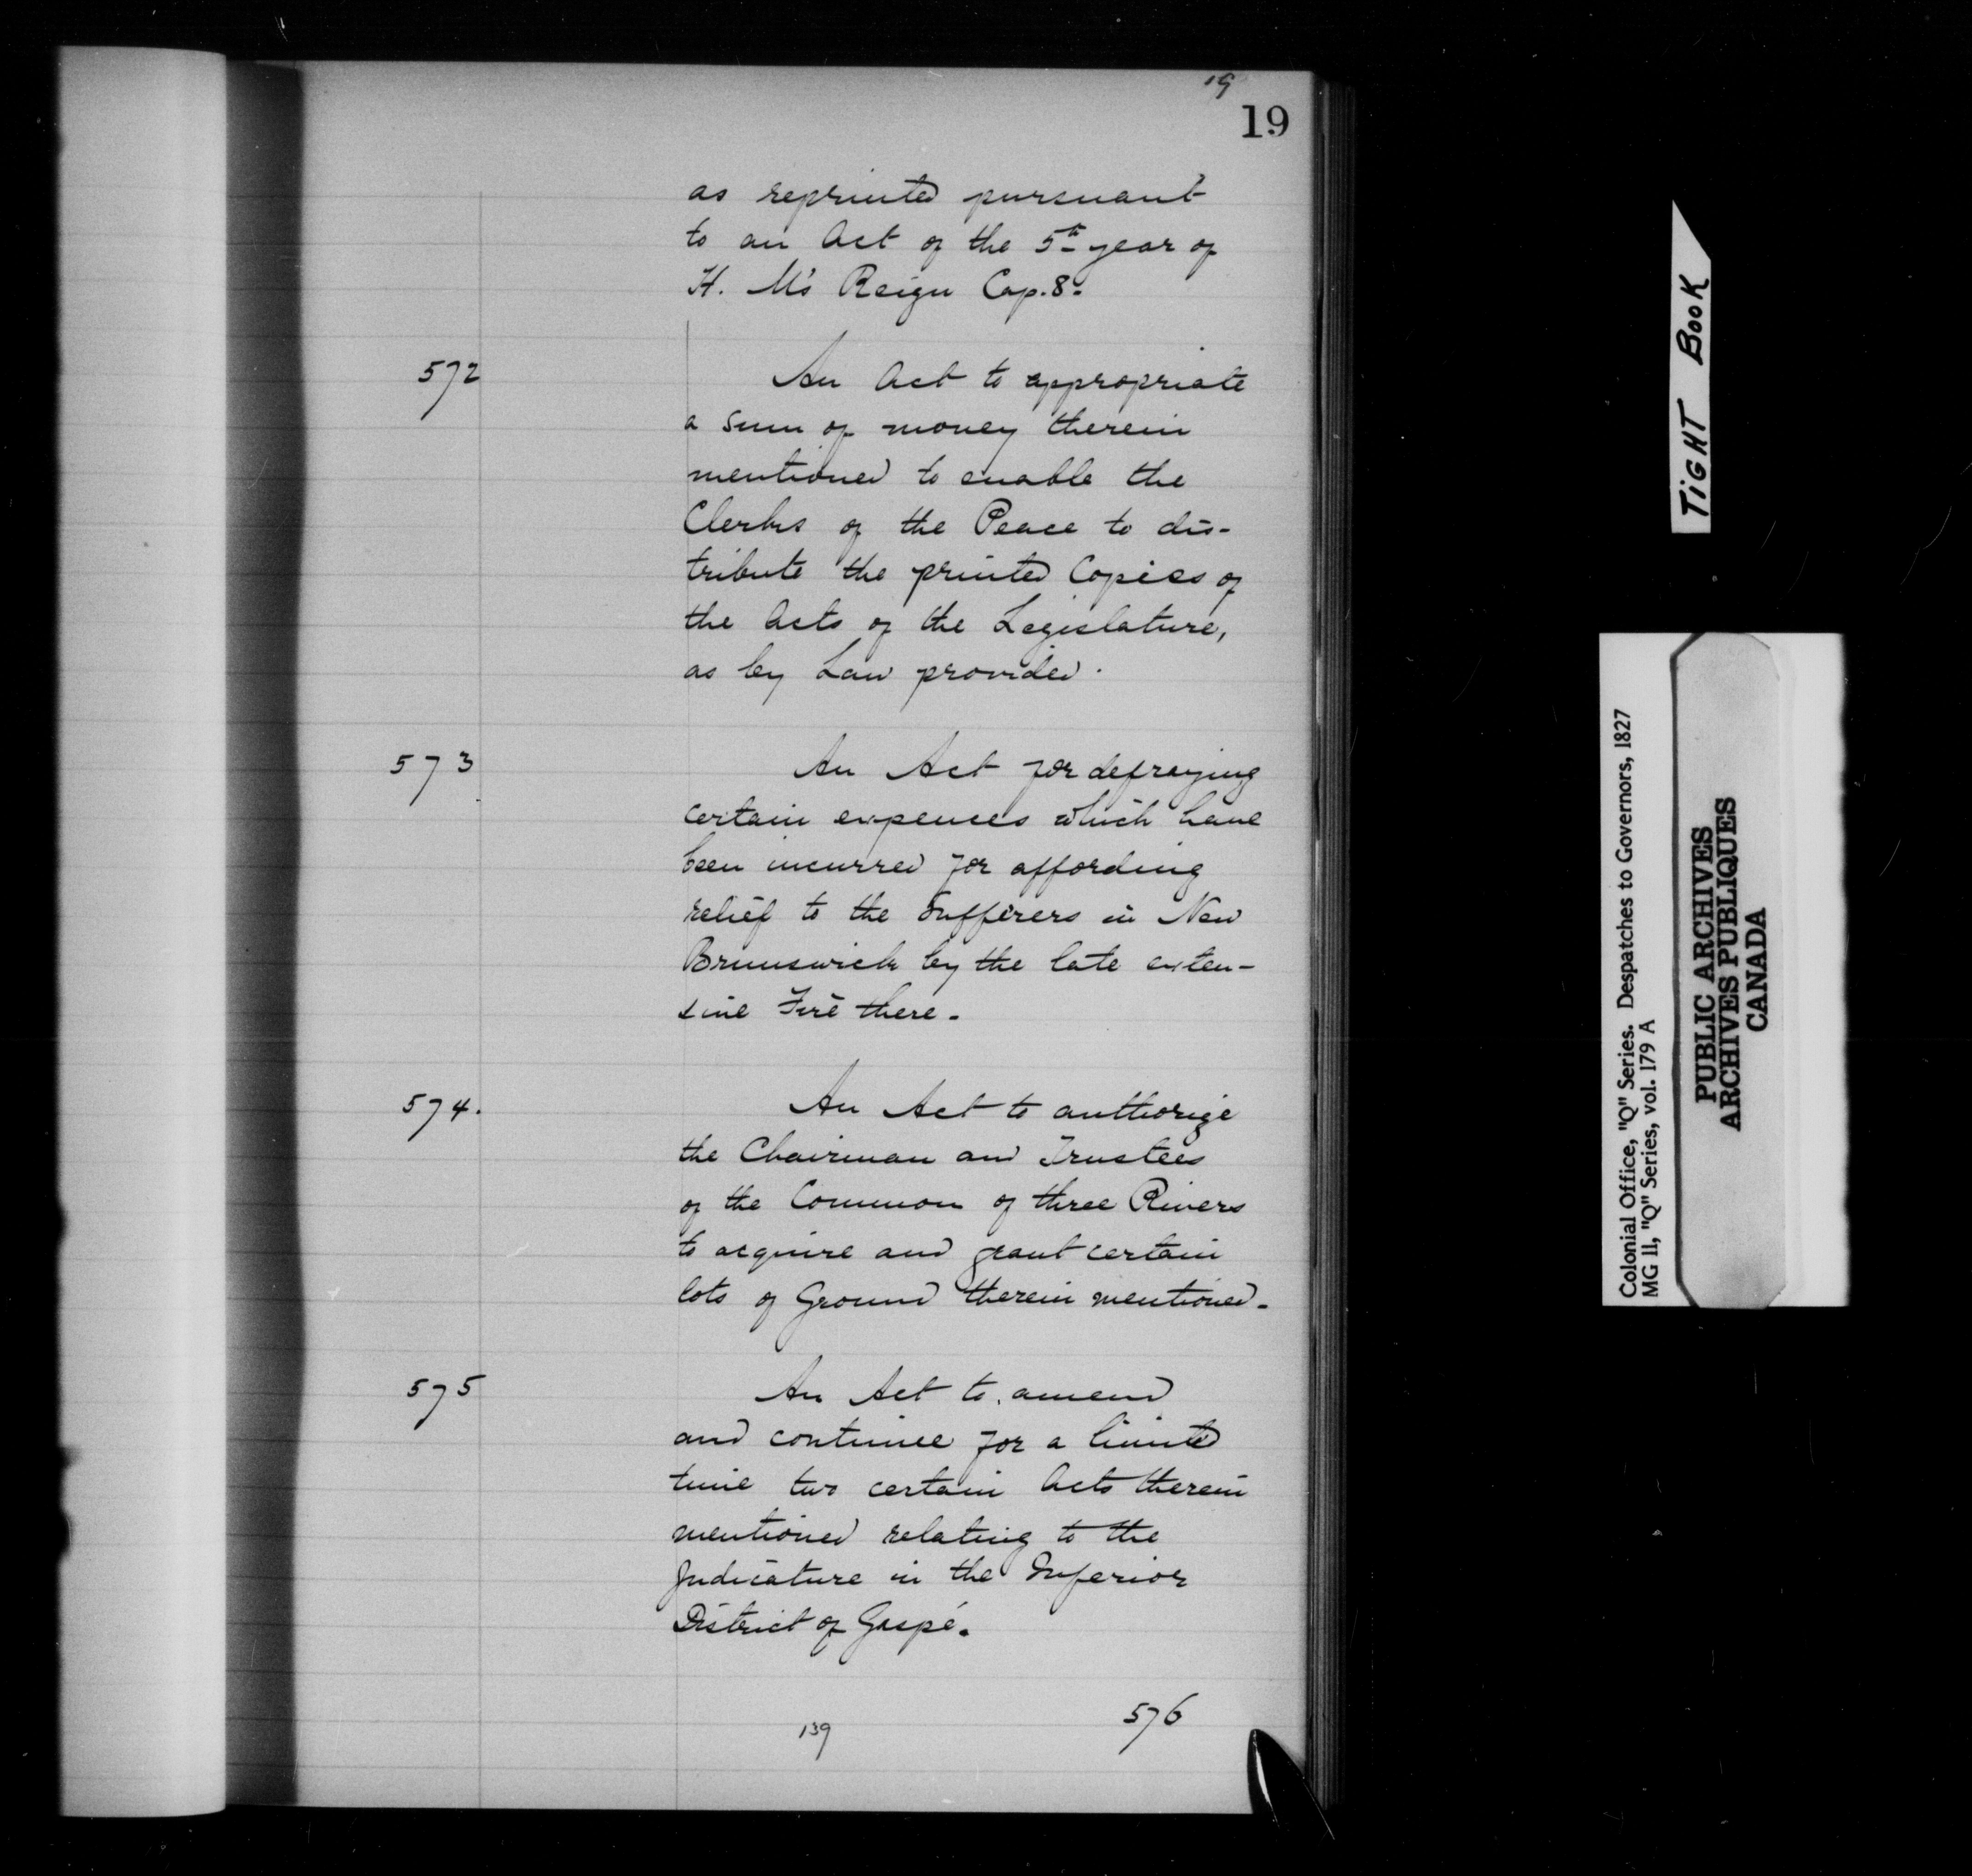 19
19
as reprinted pursuant
to an Act of the 5th year of
H. M's Reign Cap. 8.
572
An Act to appropriate
a sum of money therein
mentioned to enable the
Clerks of the Peace to dis-
tribute the printed Copies of
the Acts of the Legislature,
as by Law provided.
573
An Act for defraying
certain expences which have
been incurred for affording
relief to the Sufferers in New
Brunswick by the late exten-
sive Fire there.
574.
An Act to authorize
the Chairman and Trustees
of the Common of three Rivers
to acquire and grant certain
lots of Ground therein mentioned.
575
An Act to amend
and continue for a limited
time two certain Acts therein
mentioned relating to the
Judicature in the Inferior
District of Gaspé.
139
576
TIGHT BOOK
Colonial Office, "Q" Series. Despatches to Governors, 1827
MG 11, "Q" Series, vol. 179 A
PUBLIC ARCHIVES
ARCHIVES PUBLIQUES
CANADA